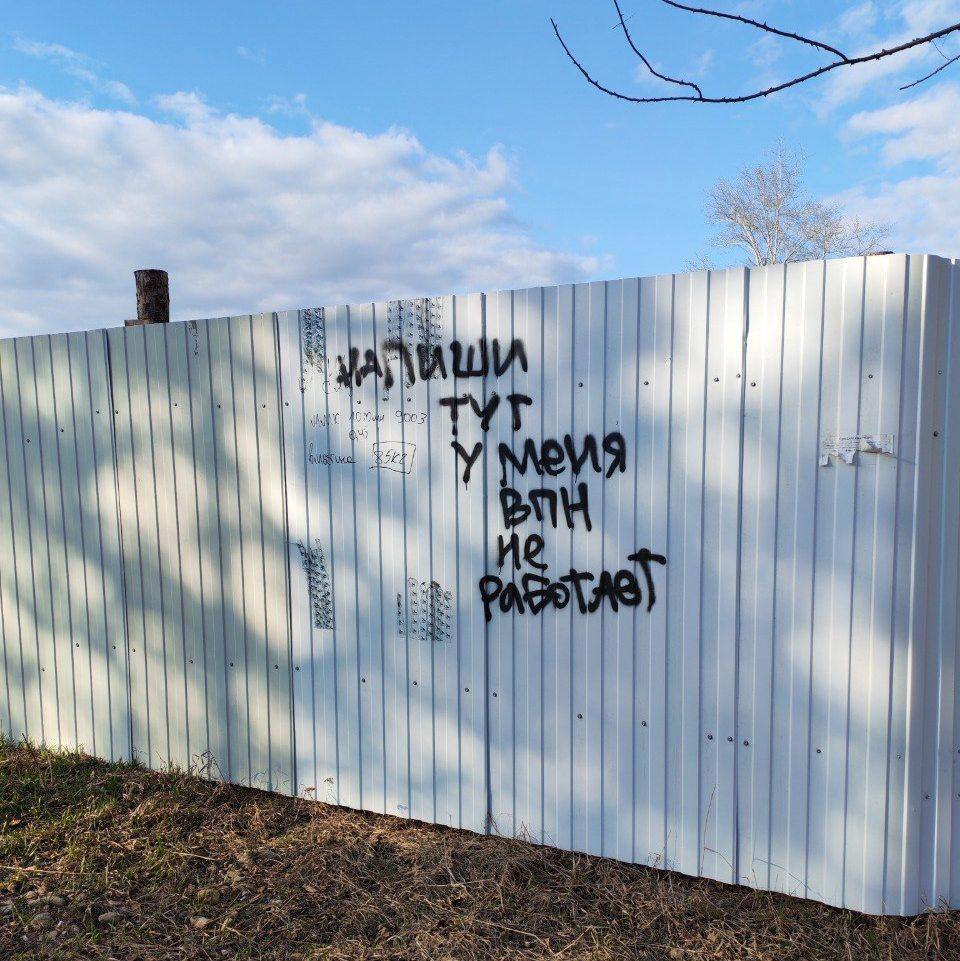 напиши
тут
у меня
впн
не
работает
9003
85к2